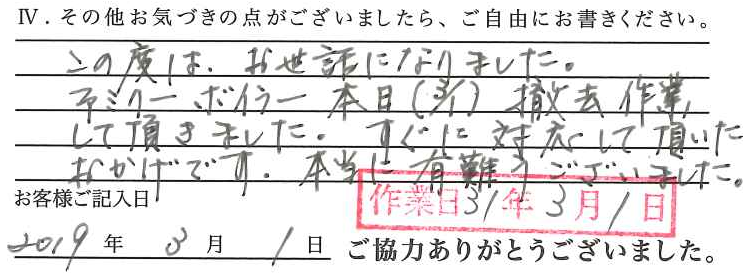 Ⅳ．その他お気づきの点がございましたら、ご自由にお書きください。
この度は、お世話になりました。
ボイラー本日(3/1)撤去作業
して頂きました。すぐに対応して頂いた
おかげです。本当に有難うございました。
お客様ご記入日
作業日31年3月1日
2019年3月1日 ご協力ありがとうございました。